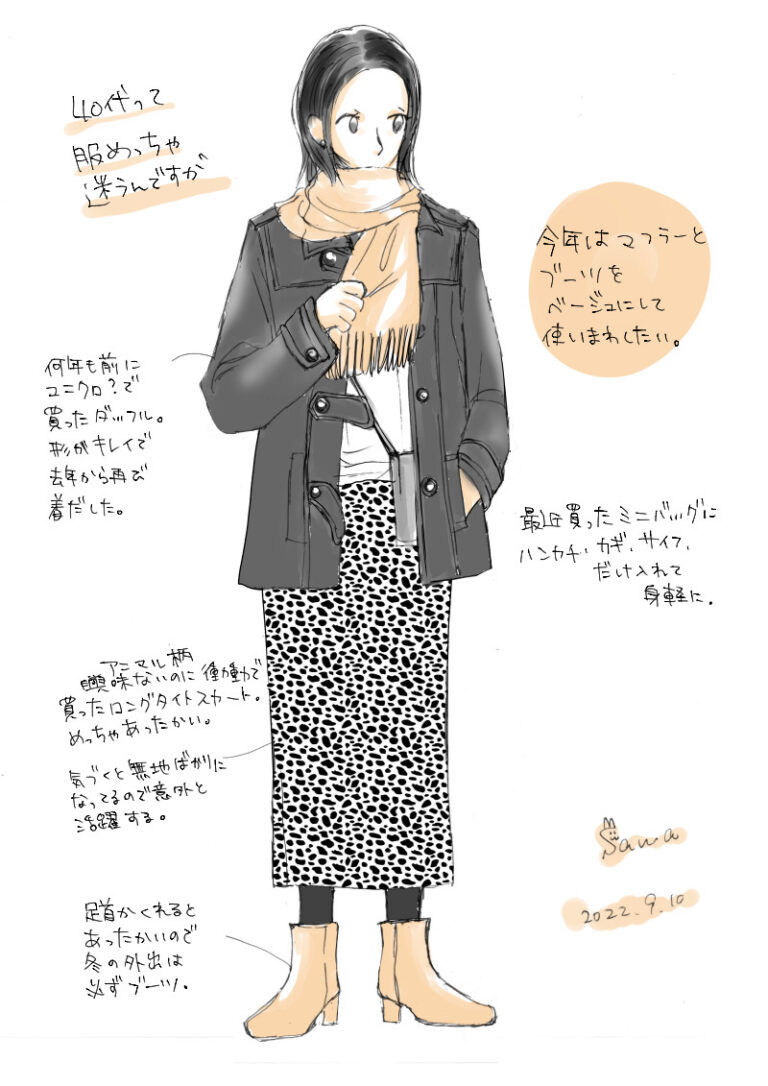 40代って
服めっちゃ
迷うんですが
今年はマフラーと
ブーツを
ベージュにして
使いまわしたい。
何年も前に
ユニクロ？で
買ったダッフル。
形がキレイで
去年から再び
着だした。
最近買ったミニバッグに
ハンカチ、カギ、サイフ、
だけ入れて
身軽に。
アニマル柄
興味ないのに衝動で
買ったロングタイトスカート。
めっちゃあったかい。
気づくと無地ばかりに
なってるので意外と
活躍する。
足首かくれると
あったかいので
冬の外出は
必ずブーツ。
Sawa
2022.9.10